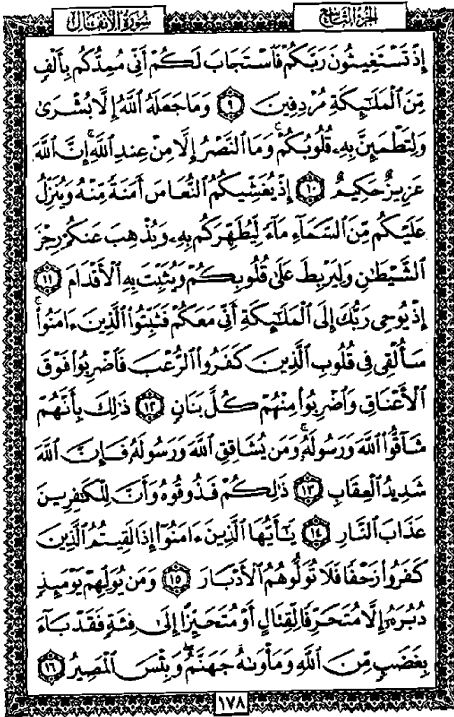 الجزء التاسع
سورة الأنفال
إِذْ تَسْتَغِيثُونَ رَبَّكُمْ فَاسْتَجَابَ لَكُمْ أَنِّي مُمِدُّكُم بِأَلْفٍ
مِّنَ الْمَلَٰٓئِكَةِ مُرْدِفِينَ ٩ وَمَا جَعَلَهُ اللَّهُ إِلَّا بُشْرَىٰ
وَلِتَطْمَئِنَّ بِهِۦ قُلُوبُكُمْ ۚ وَمَا النَّصْرُ إِلَّا مِنْ عِندِ اللَّهِ ۚ إِنَّ اللَّهَ
عَزِيزٌ حَكِيمٌ ١٠ إِذْ يُغَشِّيكُمُ النُّعَاسَ أَمَنَةً مِّنْهُ وَيُنَزِّلُ
عَلَيْكُم مِّنَ السَّمَآءِ مَآءً لِّيُطَهِّرَكُم بِهِۦ وَيُذْهِبَ عَنكُمْ رِجْزَ
الشَّيْطَٰنِ وَلِيَرْبِطَ عَلَىٰ قُلُوبِكُمْ وَيُثَبِّتَ بِهِ الْأَقْدَامَ ١١
إِذْ يُوحِي رَبُّكَ إِلَى الْمَلَٰٓئِكَةِ أَنِّي مَعَكُمْ فَثَبِّتُوا الَّذِينَ ءَامَنُوا ۚ
سَأُلْقِي فِي قُلُوبِ الَّذِينَ كَفَرُوا الرُّعْبَ فَاضْرِبُوا فَوْقَ
الْأَعْنَاقِ وَاضْرِبُوا مِنْهُمْ كُلَّ بَنَانٍ ١٢ ذَٰلِكَ بِأَنَّهُمْ
شَآقُّوا اللَّهَ وَرَسُولَهُۥ ۚ وَمَن يُشَاقِقِ اللَّهَ وَرَسُولَهُۥ فَإِنَّ اللَّهَ
شَدِيدُ الْعِقَابِ ١٣ ذَٰلِكُمْ فَذُوقُوهُ وَأَنَّ لِلْكَٰفِرِينَ
عَذَابَ النَّارِ ١٤ يَٰٓأَيُّهَا الَّذِينَ ءَامَنُوٓا إِذَا لَقِيتُمُ الَّذِينَ
كَفَرُوا زَحْفًا فَلَا تُوَلُّوهُمُ الْأَدْبَارَ ١٥ وَمَن يُوَلِّهِمْ يَوْمَئِذٍ
دُبُرَهُۥٓ إِلَّا مُتَحَرِّفًا لِّقِتَالٍ أَوْ مُتَحَيِّزًا إِلَىٰ فِئَةٍ فَقَدْ بَآءَ
بِغَضَبٍ مِّنَ اللَّهِ وَمَأْوَىٰهُ جَهَنَّمُ ۖ وَبِئْسَ الْمَصِيرُ ١٦
١٧٨